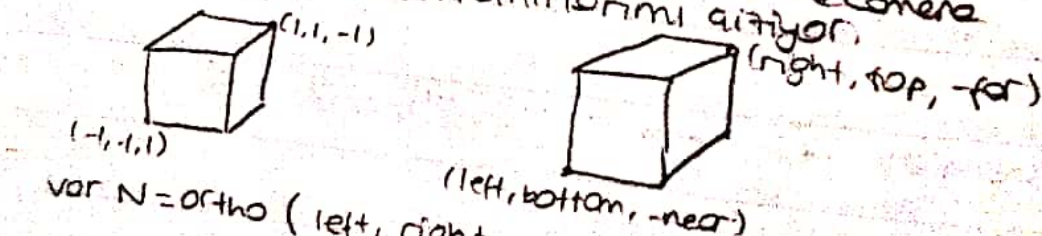 çiziyor.
(1,1,-1)
(right, top, -far)
(-1,-1,1)
(left, bottom, -near)
var N = ortho ( left, right